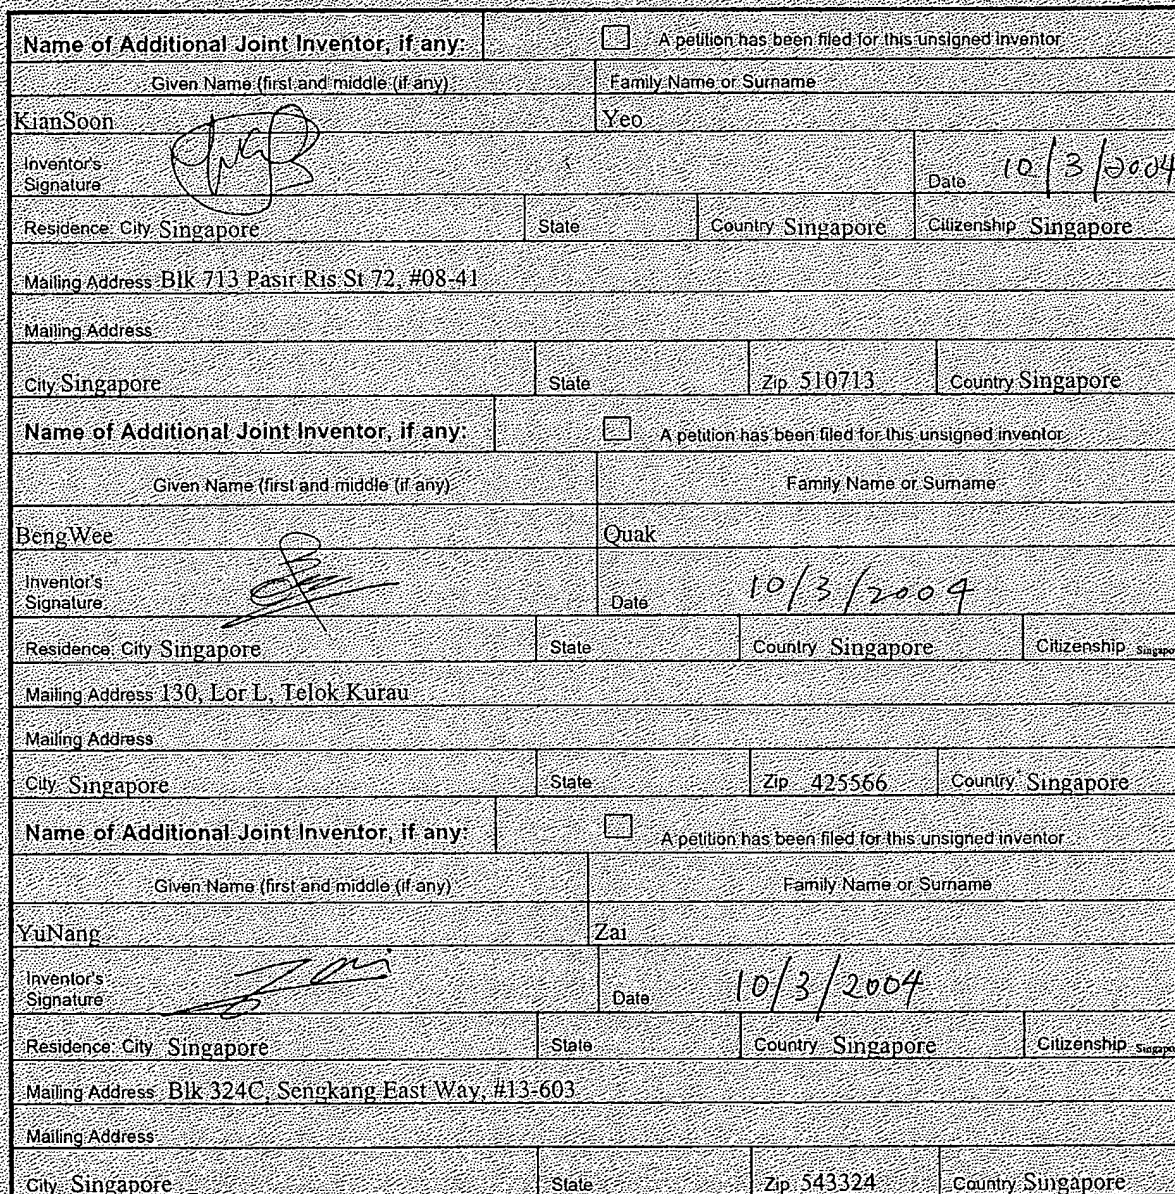 Name of Additional Joint Inventor, if any: A petition has been filed for this unsigned inventor
Given Name (first and middle (if any) Family Name or Surname
KianSoon Yeo
Inventor's
Signature Date 10/3/2004
Residence: City Singapore State Country Singapore Citizenship Singapore
Mailing Address Blk 713 Pasir Ris St 72, #08-41
Mailing Address
City Singapore State Zip 510713 Country Singapore
Name of Additional Joint Inventor, if any: A petition has been filed for this unsigned inventor
Given Name (first and middle (if any) Family Name or Surname
BengWee Quak
Inventor's
Signature Date 10/3/2004
Residence: City Singapore State Country Singapore Citizenship
Mailing Address 130, Lor L, Telok Kurau
Mailing Address
City Singapore State Zip 425566 Country Singapore
Name of Additional Joint Inventor, if any: A petition has been filed for this unsigned inventor
Given Name (first and middle (if any) Family Name or Surname
YuNang Zai
Inventor's
Signature Date 10/3/2004
Residence: City Singapore State Country Singapore Citizenship
Mailing Address Blk 324C, Sengkang East Way, #13-603
Mailing Address
City Singapore State Zip 543324 Country Singapore